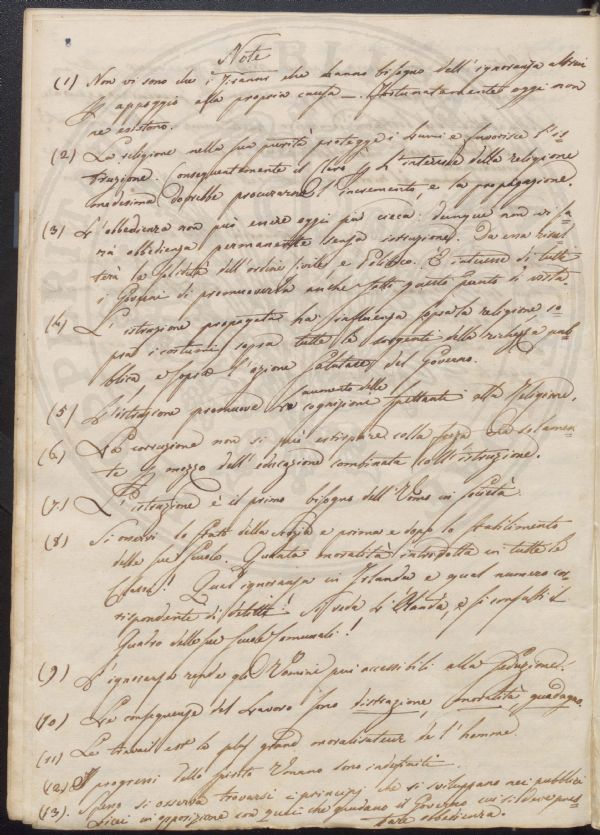 Note
(1) Non vi sono che i Tiranni che hanno bisogno dell'ignoranza altrui
appoggio alla propria causa —. Fortunatamente oggi non
ne esistono.
(2) La religione nella sua purità protegge i lumi e favorisce l'is=
truzione. Conseguentemente il Clero l'interesse della religione
medesima dovrebbe procurarne l'incremento, e la propagazione.
(3) L'obbedienza non può essere oggi più cieca: dunque non vi sa=
rà obbedienza permanente senza istruzione. Da essa risul=
terà la solidità dell'ordine Civile e Politico. È interesse di tutti
i Governi di promuoverla anche sotto questo punto di vista.
(4) L'istruzione propagata ha influenza sopra la religione so=
pra i costumi, sopra tutte le sorgenti della ricchezza pub=
blica e sopra l'azione salutare del Governo.
(5) L'istruzione promuove l'aumento delle cognizione spettanti alla Religione.
(6) La corruzione non si può estirpare colla forza ma solamen=
te mezzo dell'educazione combinata coll'istruzione.
(7) L'istruzione è il primo bisogno dell'Uomo in società
(8) Si osservi lo stato della Scozia e prima e dopo lo stabilimento
delle sue Scuole. Quanta moralità introdotta in tutte le
Classi! Qual ignoranza in Irlanda e qual numero cor=
rispondente di delitti! Si veda l'Olanda, e si consulti il
Quadro delle sue Scuole Comunali!
(9) L'ignoranza rende gli Uomini più accessibili alla seduzione.
(10) Le conseguenze del Lavoro sono distrazione, moralità guadagno.
(11) Le travail est le plus grand moralisateur de l'homme
(12) I progressi dello spirito Umano sono indefiniti.
(13). Spesso si osserva trovarsi i principj che si sviluppano nei pubblici
Licei in opposizione con quelli che guidano il Governo cui si deve pres=
tare obbedienza.